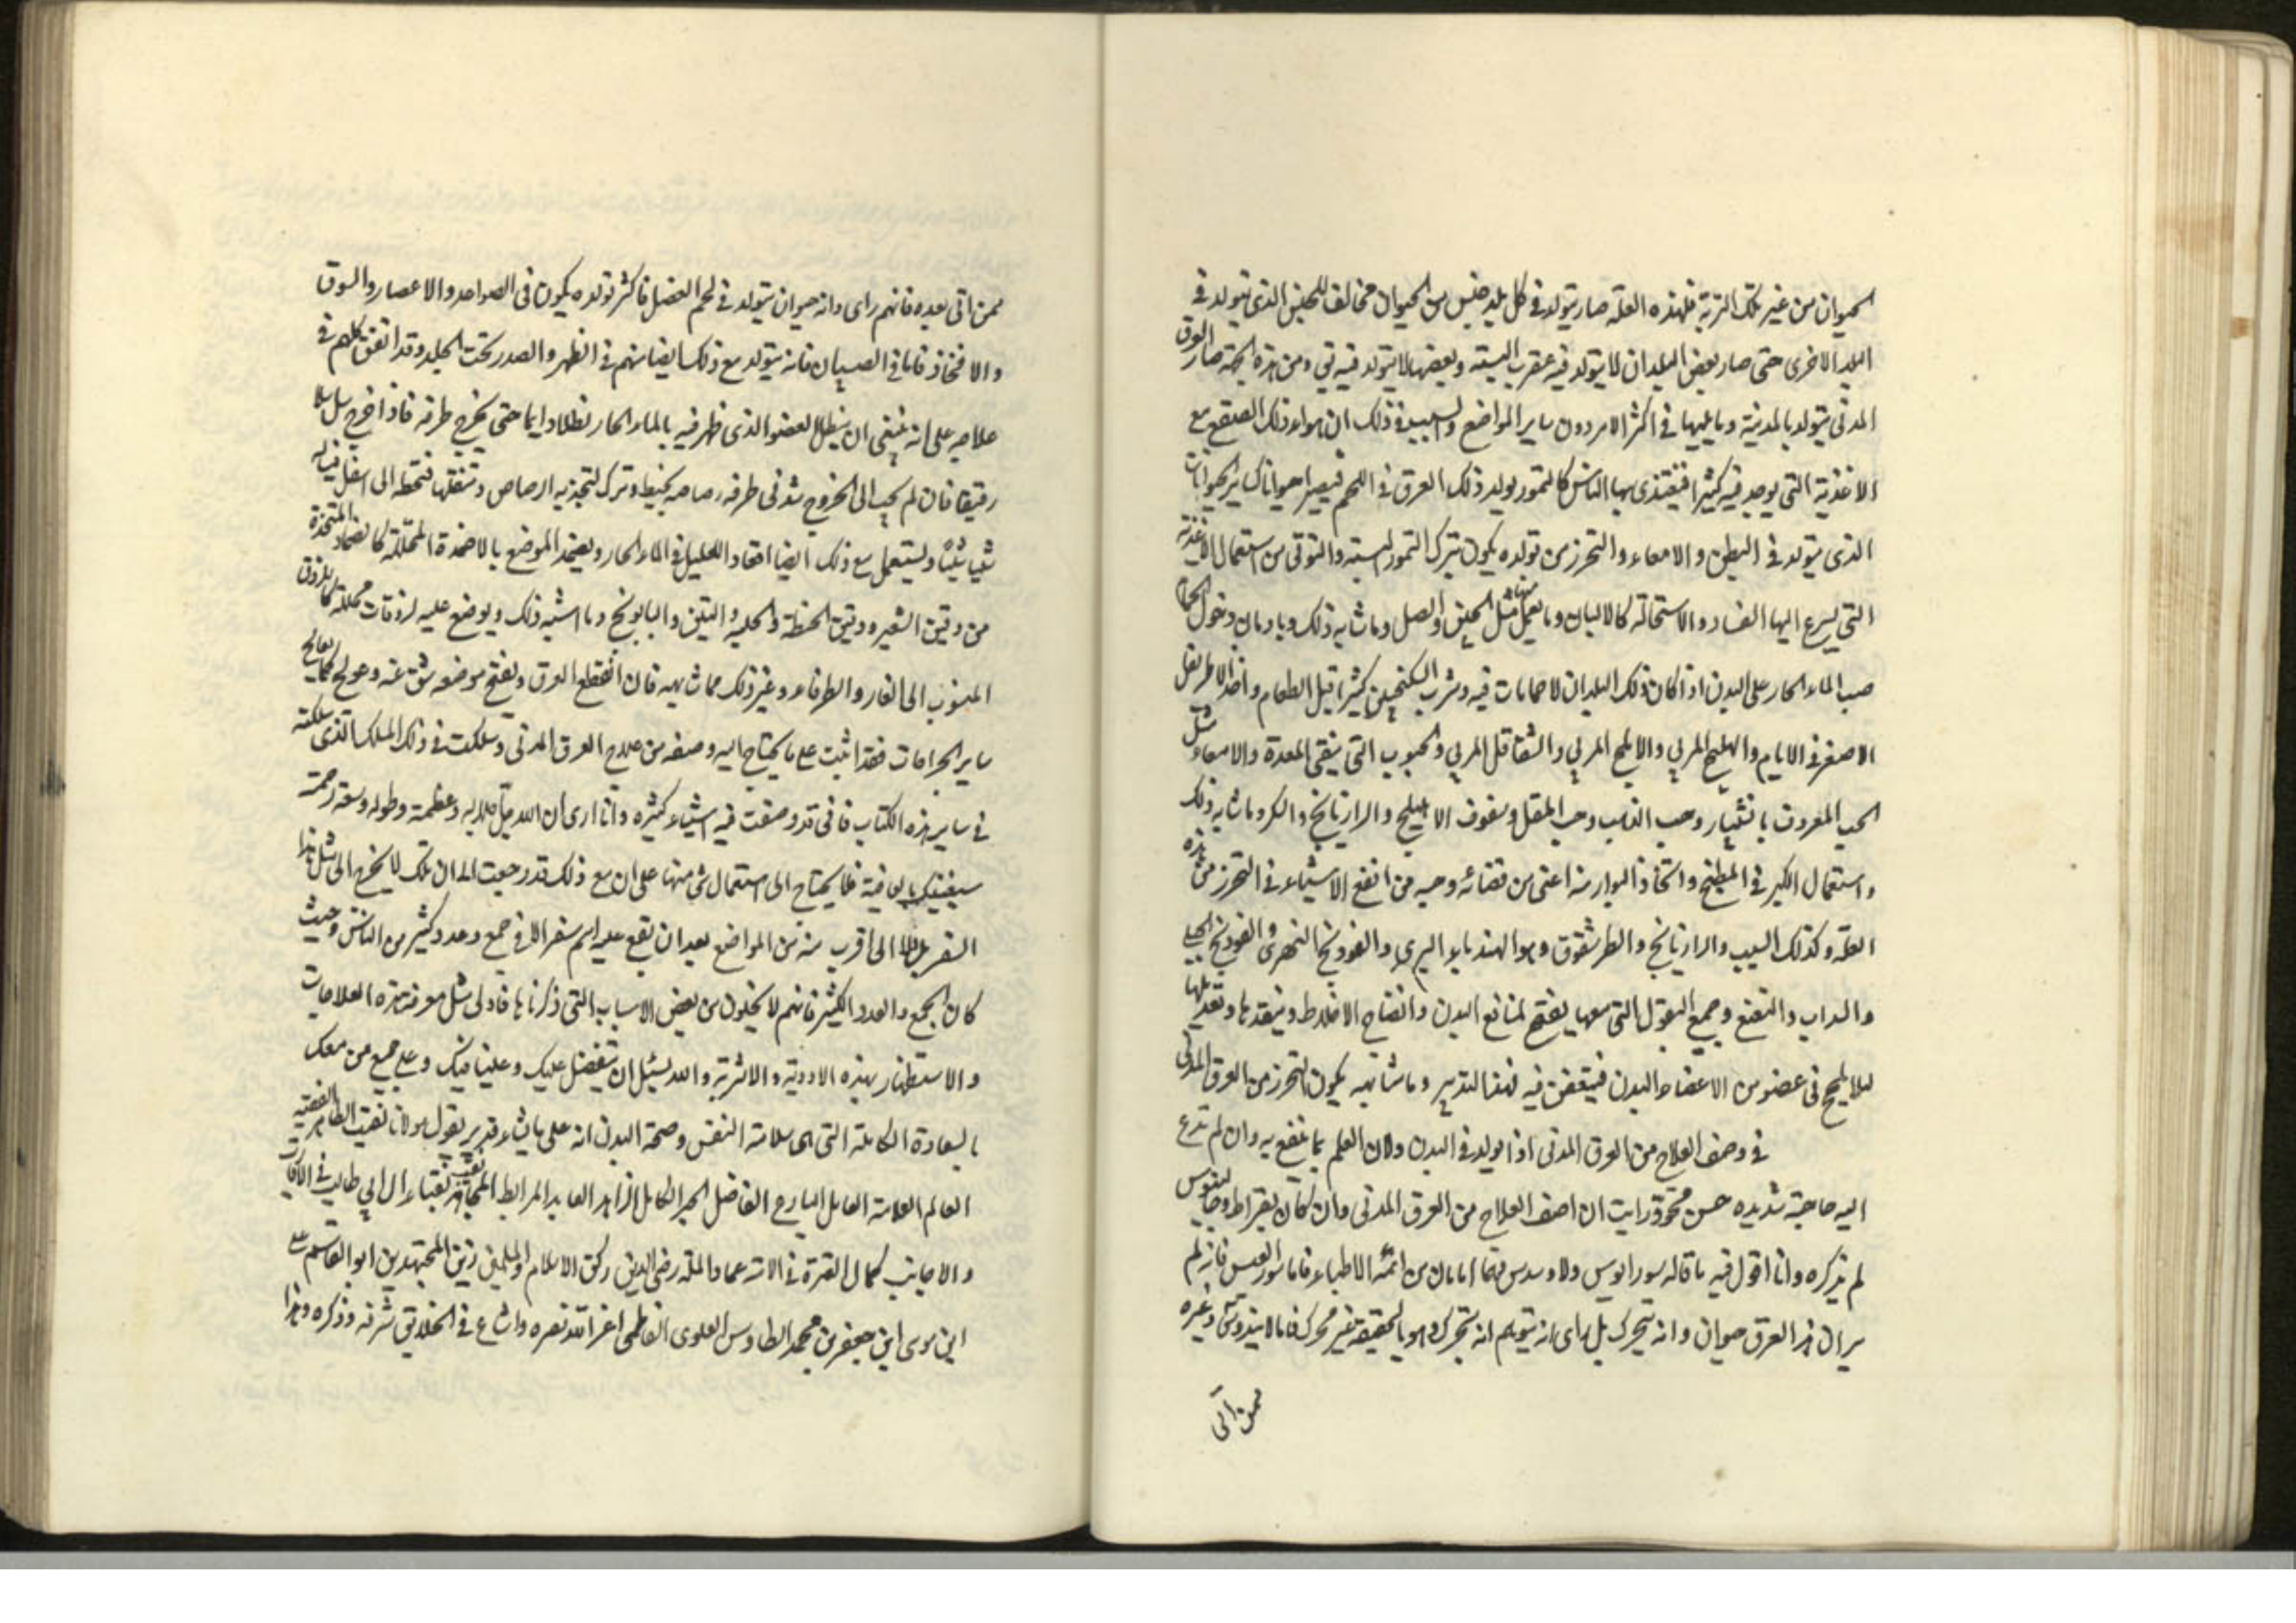 الحيوان من غير تلك التربة فلهذه العلة صار يتولد في كل بلد جنس من الحيوان مخالف للجنس الذي يتولد في
البلد الاخرى حتى صار بعض البلدان لا يتولد فيه عقرب البتة وبعضها لا يتولد فيه بق ومن هذه الجهة صار العرق
المدني يتولد بالمدينة وما يليها في اكثر الامر دون ساير المواضع والسبب في ذلك ان هواء ذلك الصقع مع
الاغذية التي يوجد فيه كثيرا فيغتذي بها الناس كالتمور يولد ذلك العرق في اللحم فيصير حيوانا كساير الحيوانات
الذي يتولد في البطن والامعاء والتحرز من تولده يكون بترك التمور البتة والتوقي من استعمال الاغذية
التي يسرع اليها الفساد والاستحالة كالالبان وما يعمل منها مثل الجبن والمصل وما شابه ذلك وبادمان دخول الحمام
صب الماء الحار على البدن اذا كان ذلك البلدان لا حمامات فيه وشرب السكنجبين كثيرا قبل الطعام واخذ الاطريفل
الاصغر في الايام والهليلج المربي والاملج المربي والشقاقل المربي والحبوب التي ينقي المعدة والامعاء مثل
الحب المعروف بانثيار وحب الذهب وحب المقل وسفوف الاهليلج والرازيانج والسكر وما شابه ذلك
واستعمال الكبر في المطبخ واتخاذ البوارد منه اعني من قضبانه وحبه من انفع الاشياء في التحرز من هذه
العلة وكذلك السبب والرازيانج والطرشقوق وهو الهندباء البري والفودنج النهري والفودنج الجبلي
والسداب والنعنع وجميع البقول التي معها يفتح لمنافع البدن وانضاج الاخلاط وينفذها وتعديلها
لئلا يلحج في عضو من الاعضاء البدن فيتعفن فيه فبهذا التدبير وما شابهه يكون التحرز من العرق المدني
في وصف العلاج من العرق المدني اذا تولد في البدن ولان العلم بما ينفع به وان لم تدع
اليه حاجة شديدة حسن محقق رايت ان اصف العلاج من العرق المدني وان كان بقراط وجالينوس
لم يذكره وانا اقول فيه ما قاله سورانوس ولاوندس فهما امامان من ائمة الاطباء فاما سورانوس فانه لم
ير ان هذا العرق حيوان وانه يتحرك بل راى انه يتوهم انه يتحرك وهو بالحقيقة غير محرك فاما لاونيدس وغيره
ممن اتى
ممن اتى بعده فانهم راى وانه حيوان يتولد في لحم العضل فاكثر تولده يكون في السواعد والاعضار والسوق
والافخاذ فاما في الصبيان فانه يتولد مع ذلك ايضا منهم في الظهر والصدر تحت الجلد وقد اتفق كلهم في
علاجه على انه ينبغي ان ينطل العضو الذي ظهر فيه بالماء الحار نطلا دايما حتى يخرج طرفه فاذا خرج سل سلا
رفيقا فان لم يجب الى الخروج شد في طرفه رصاصه بخيط وترك لتجذبه الرصاص وتثقلها فتحطه الى اسفل فيسله
شيا شيئا وليستعمل مع ذلك ايضا اقعاد العليل في الماء الحار ويضمد الموضع بالاضمدة المحللة كالضماد المتخذة
من دقيق الشعير ودقيق الحنطة والحلبه والتين والبابونج وما اشبه ذلك ويوضع عليه لزوقات محللة كاللزوق
المنسوب الى الغار والطرفاء وغير ذلك مما شابهه فان انقطع العرق وبفتح موضعه شق عنه وعولج كما يعالج
ساير الجراحات فقد اتيت على ما يحتاج اليه وصفه من علاج العرق المدني وسلكت في ذلك المسلك الذي سلكته
في ساير هذه الكتاب فاني قد وصفت فيه اشياء كثيرة وانا ارى ان الله جل جلاله وعظمته وطوله وسعة رحمته
سيغنيك بالعافية فلا يحتاج الى استعمال شي منها على ان مع ذلك قد رجعت الى ان مثلك لا يخرج الى مثل هذا
السفر بل ولا الى اقرب منه من المواضع بعد ان يقع عليه اسم سفر الا في جمع وعدد كثير من الناس وحيث
كان الجمع والعدد الكثير فانهم لا يخلون من بعض الاسباب التي ذكرناها فادلى مثل معرفة هذه العلاجات
والاستظهار بهذه الادوية والاشربة والله يسئل ان يتفضل عليك وعلينا فيك وعلى جميع من معك
بالسعادة الكاملة التي هي سلامة النفس وصحة البدن انه على ما يشاء قدير يقول مولانا نقيب الطاهر الفقيه
العالم العلامة العامل البارع الفاضل الحبر الكامل الزاهد العابد المرابط المجاهد نقيب نقباء ال ابي طالب في الاقارب
والاجانب كمال العترة في الامة عماد الملة رضي الدين ركن الاسلام والمسلمين زين المجتهدين ابو القاسم علي
ابن موسى ابن جعفر بن محمد الطاوس العلوي الفاطمي اعز الله نصره واشاع في الخلايق شرفه وذكره وهذا